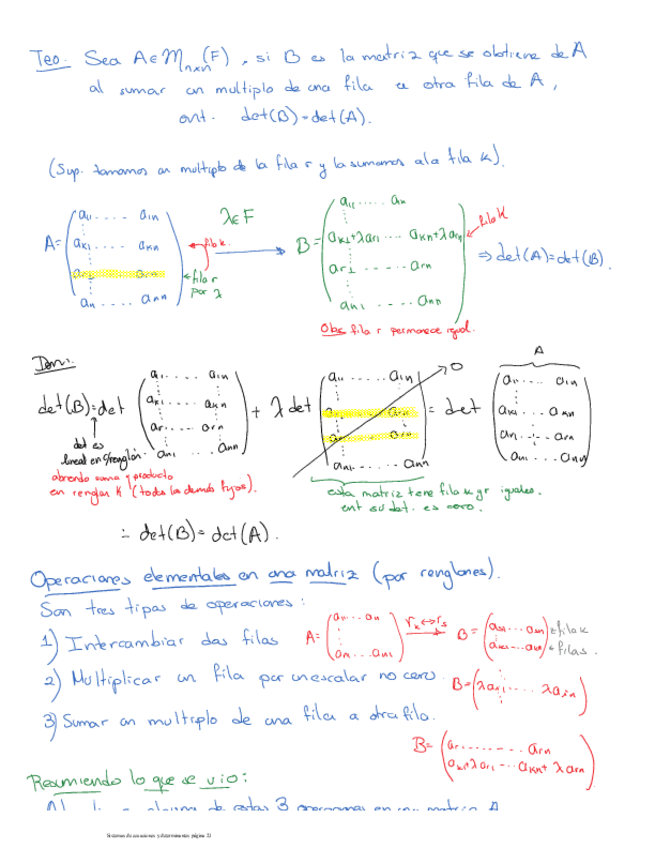 Teo. Sea A ∈ M_{n×n}(F), si B es la matriz que se obtiene de A
al sumar un multiplo de una fila a otra fila de A,
ent. det(B) = det(A).
(Sup. tomamos un multiplo de la fila r y la sumamos a la fila k).
A = ( a11 .... a1n ; ak1 .... akn ; ar1 .... arn ; an1 .... ann ) ← fila k ← fila r por λ
λ ∈ F
B = ( a11 .... a1n ; ak1+λar1 .... akn+λarn ; ar1 ..... arn ; an1 .... ann ) fila k
⇒ det(A) = det(B).
Obs fila r permanece igual.
Dem:
det(B) = det ( a11 .... a1n ; ak1 .... akn ; ar1 .... arn ; an1 .... ann ) + λ det ( a11 .... a1n ; an1 .... ann ) → 0 = det ( a11 .... a1n ; ak1 .... akn ; ar1 .... arn ; an1 .... ann ) A
det es
lineal en c/renglón
abriendo suma y producto
en renglon k (todos los demás fijos).
esta matriz tiene fila k y r iguales.
ent su det. es cero.
∴ det(B) = det(A).
Operaciones elementales en una matriz (por renglones).
Son tres tipos de operaciones:
1) Intercambiar dos filas A = rk ↔ rs B = ← fila k ← fila s.
2) Multiplicar un fila por un escalar no cero. B =
3) Sumar un multiplo de una fila a otra fila.
B = ( ar1 ....... arn ; ak1+λar1 ... akn+λarn )
Resumiendo lo que se vio:
Sistemas de ecuaciones y determinantes página 23